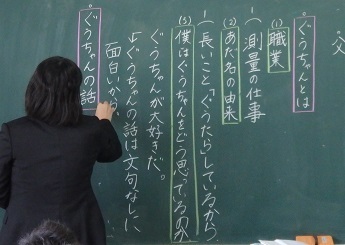 。ぐうちゃんとは
(1)
職業
(測量の仕事
(2)
あだ名の由来
(長いこと「ぐうたら」しているから
(3)
僕はぐうちゃんをどう思っているのか
ぐうちゃんが大好きだ。
↓ぐうちゃんの話は文句なしに
面白いから。
。ぐうちゃんの話